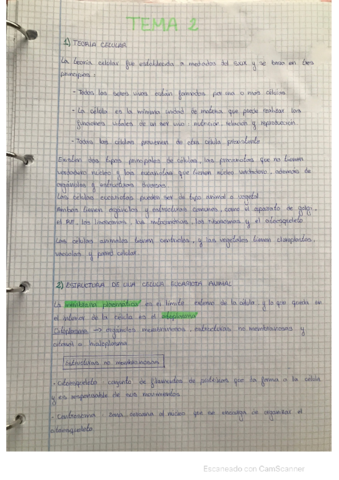 TEMA 2
1) TEORIA CELULAR
La teoria celular fue establecida a mediados del s.XIX y se basa en tres
principios:
- Todos los seres vivos están formados por una o mas células
- La célula es la mínima unidad de materia que puede realizar las
funciones vitales de un ser vivo: nutricion, relacion y reproduccion
- Todas las células provienen de otra celula preexistente
Existen dos tipos principales de células, las procariotas que no tienen
verdadero núcleo y las eucariotas que tienen núcleo verdadero, además de
orgánulos y estructuras diversas
Las células eucariotas pueden ser de tipo animal o vegetal
Ambas tienen orgánulos y estructuras comunes, como el aparato de golgi,
el RE, los lisosomas, las mitocondrias, los ribosomas y el citoesqueleto
Las celulas animales tienen centriolos, y las vegetales tienen cloroplastos,
vacuolas y pared celular
2) ESTRUCTURA DE UNA CELULA EUCARIOTA ANIMAL
La membrana plasmatica es el limite externo de la célula, y lo que queda en
el interior de la célula es el citoplasma
Citoplasma → orgánulos membranosos, estructuras no membranosas y
citosol o hialoplasma
Estructuras no membranosas
- Citoesqueleto: conjunto de filamentos de proteínas que da forma a la célula
y es responsable de sus movimientos
- Centrosoma: zona cercana al núcleo que se encarga de organizar el
citoesqueleto
Escaneado con CamScanner